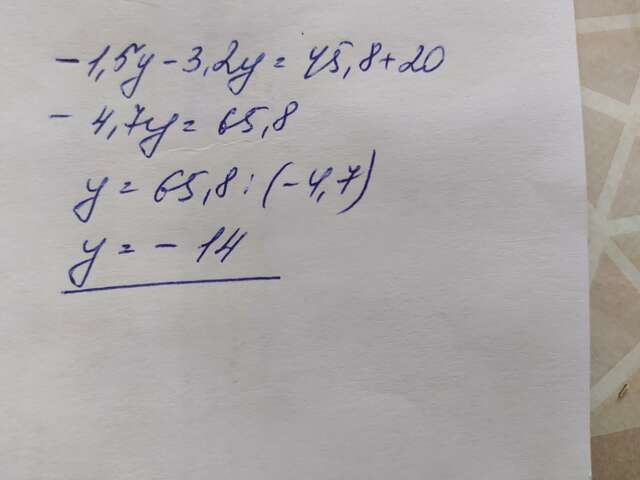 -1,5y-3,2y=45,8+20
-4,7y=65,8
y=65,8:(-4,7)
y=-14